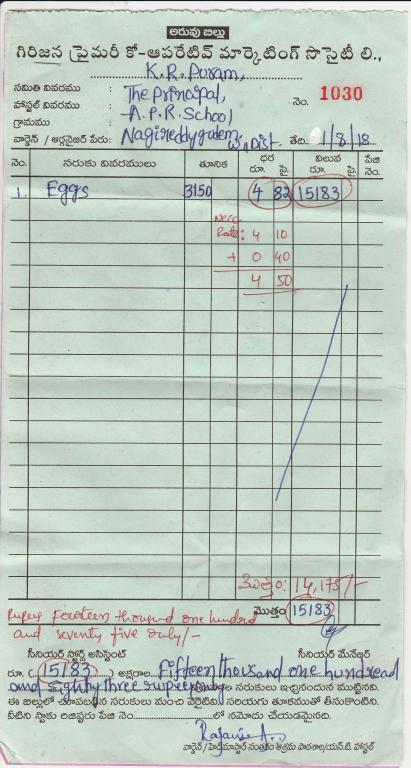 అరువు బిల్లు
గిరిజన ప్రైమరీ కో-ఆపరేటివ్ మార్కెటింగ్ సొసైటీ లి.,
K.R. Puram,
సమితి వివరము : The Principal,
హాస్టల్ వివరము : A.P.R. School నెం. 1030
గ్రామము :
వార్డెన్ / ఆర్గనైజర్ పేరు: Nagireddygudem, W.Dist. తేది: 1/8/18
నెం. సరుకు వివరములు తూనిక ధర రూ. పై. విలువ రూ. పై. పేజి నెం.
1. Eggs 3150 4 82 15183
Necc
Rate: 4 10
+ 0 40
4 50
మొత్తం: 14,175/-
Rupees Fourteen thousand one hundred మొత్తం 15183
and seventy five only/-
సీనియర్ స్టోర్స్ అసిస్టెంట్ సీనియర్ మేనేజర్
రూ. (15183) అక్షరాల Fifteen thousand one hundread
and Eighty three rupees only సరుకులు ఇచ్చినందున ముట్టినవి.
ఈ బిల్లులో చూపబడిన సరుకులు మంచి వెరైటివి సరియగు తూకముతో తీసుకొంటిని.
వీటిని స్టాకు రిజిష్టరు పేజి నెం. లో నమోదు చేయడమైనది.
వార్డెన్ / హెడ్‌మాస్టర్ సంతకం ఆశ్రమ పాఠశాల/యస్.టి. హాస్టల్